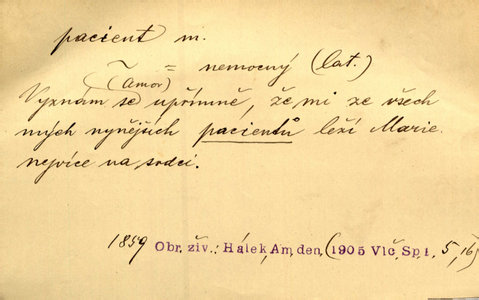 pacient m.
~ = nemocný (lat.)
(Amor)
Vyznám se upřímně, že mi ze všech
mých nynějších pacientů leží Marie
nejvíce na srdci.
1859 Obr. živ.; Hálek, Am, den, (1905 Vlč. Sp. 1. 5, 16)